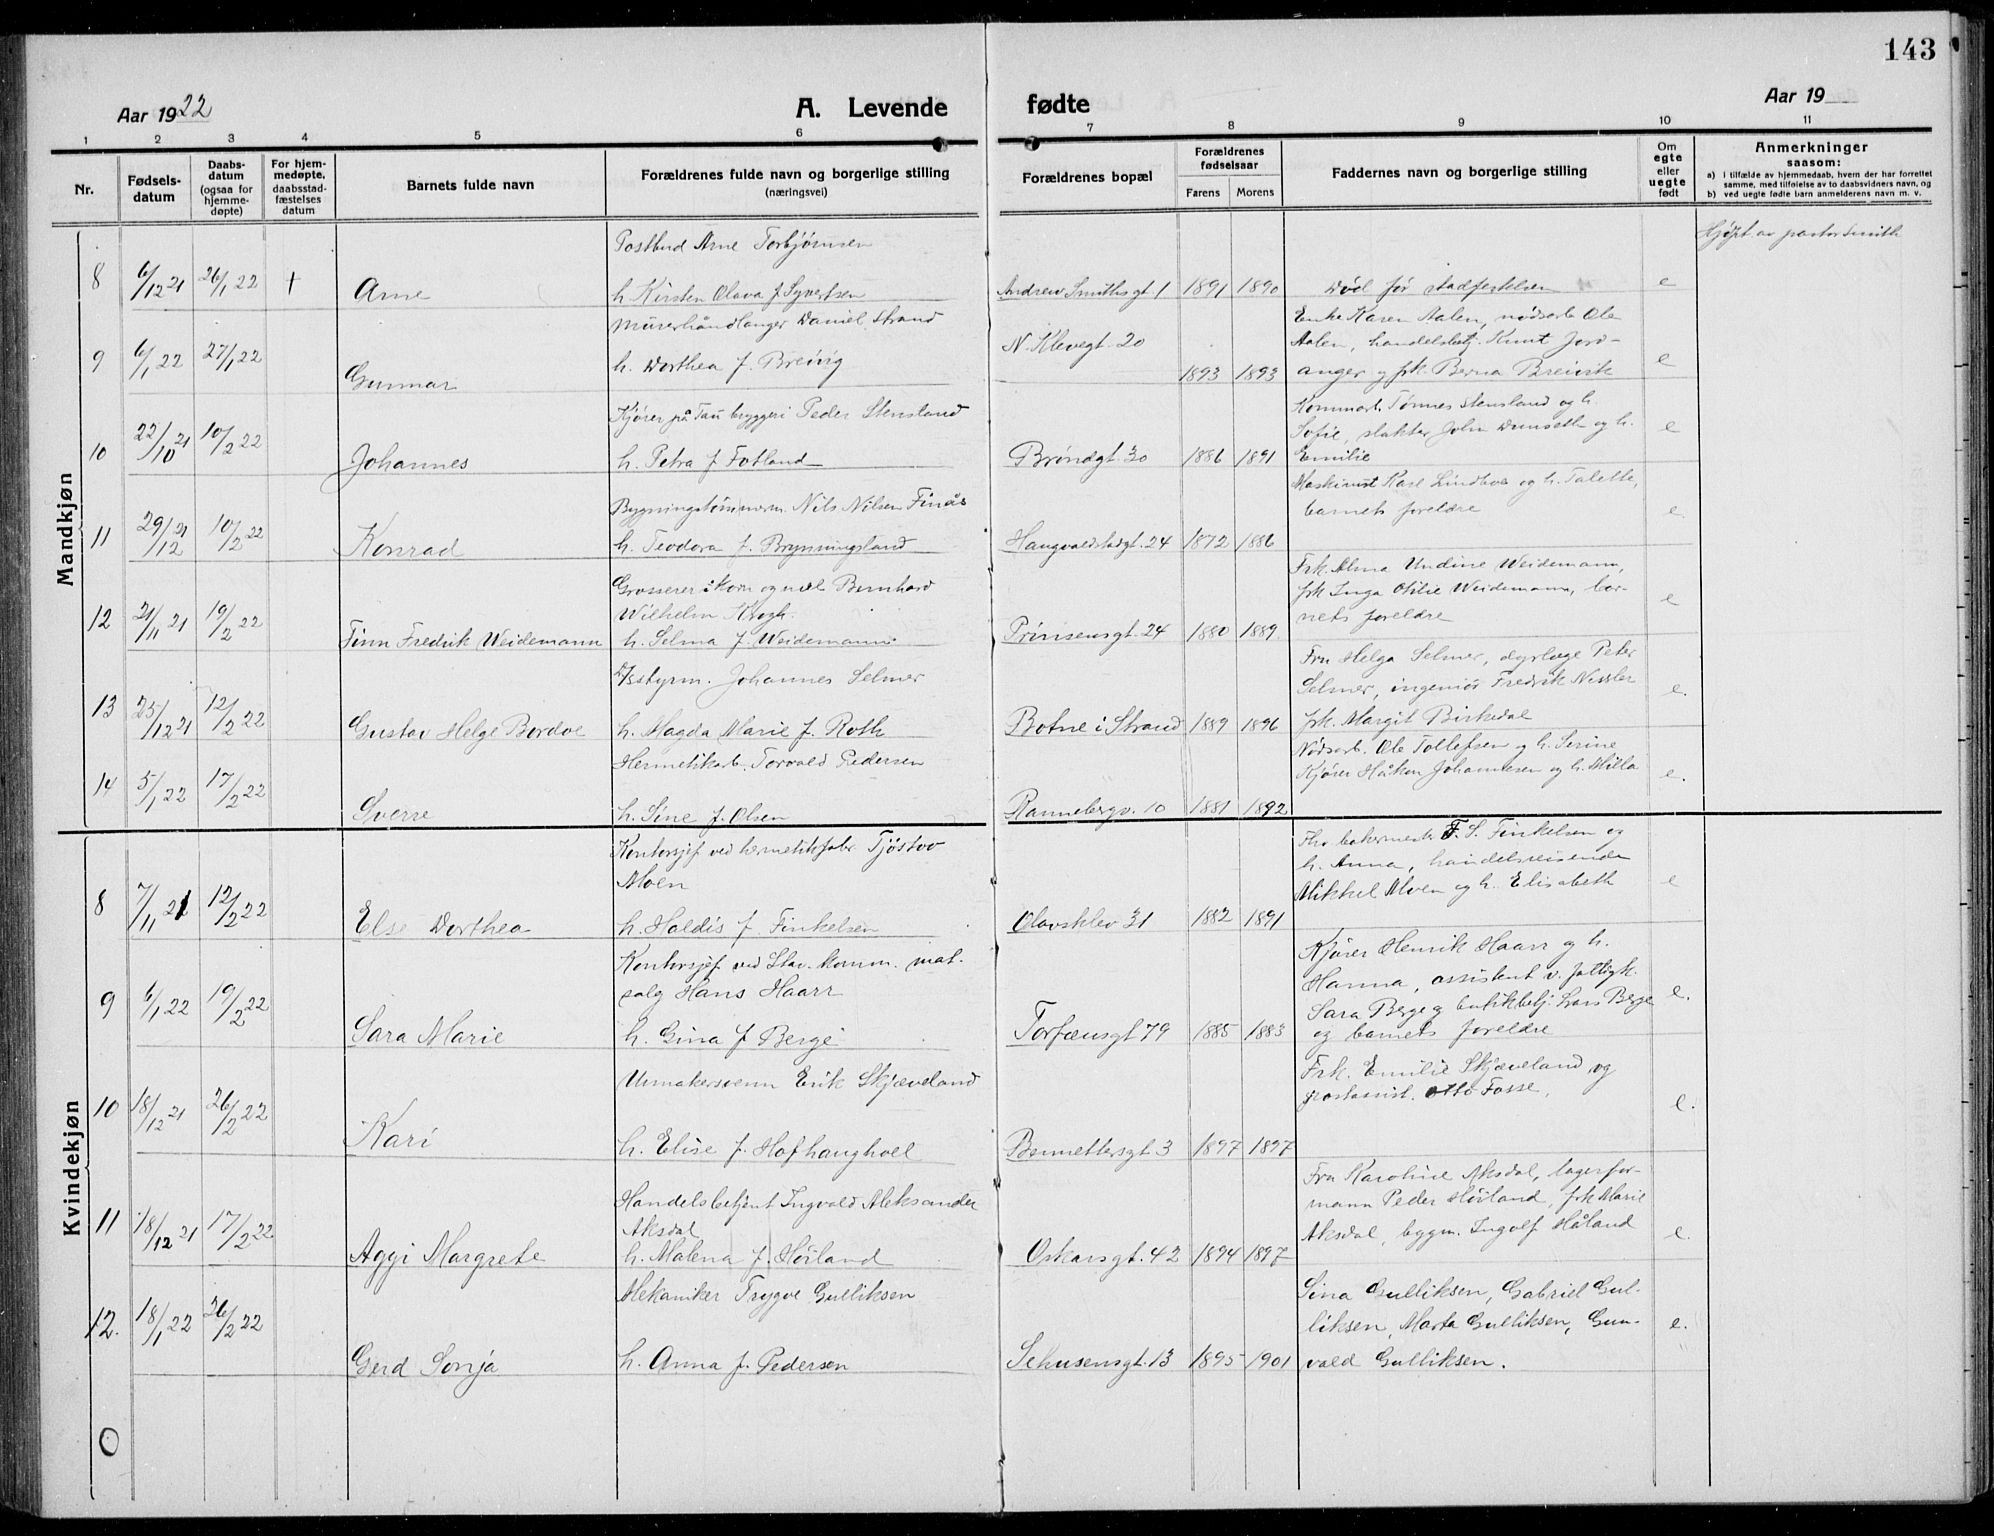 143
Aar 1922
A. Levende
fødte
Aar 19
1 2 3 4 5 6 7 8 9 10 11
Nr.
Fødsels-
datum
Daabs-
datum
(ogsaa for
hjemme-
døpte)
For hjem-
medøpte,
daabsstad-
fæstelses
datum
Barnets fulde navn
Forældrenes fulde navn og borgerlige stilling
(næringsvei)
Forældrenes bopæl
Forældrenes
fødselsaar
Farens Morens
Faddernes navn og borgerlige stilling
Om
egte
eller
uegte
født
Anmerkninger
saasom:
a) i tilfælde av hjemmedaab, hvem der har forrettet
samme, med tilføielse av to daabsvidners navn, og
b) ved uegte fødte barn anmelderens navn m. v.
Mandkjøn
Postbud Arne Torbjørnsen
Hjdpt. av pastor Smith
8 6/12 21 26/1 22 + Arne h. Kirsten Olava f. Syvertsen Andrew Smithsgt. 1 1891 1890 Död før stadfestelsen e
Murerhåndlanger Daniel Strand
Enke Karen Aalen, nødsarb. Ole
9 6/1 22 27/1 22 Gunnar h. Dorthea f. Breivig N. Klevegt. 20 1893 1893 Aalen, handelsbetj. Knut Jord-
anger og frk. Berna Breivik e
Kjører på Tau bryggeri Peder Stensland
Kommarb. Tønnes Stensland og h.
Sofie, slakter John Dunseth og h.
10 22/10 21 10/2 22 Johannes h. Petra f. Fotland Brøndgt. 30 1886 1891 Emilie e
Bygningstømmerm. Nils Nilsen Finås
Maskinist Karl Lindboe og h. Talette,
barnets foreldre
11 29/12 21 10/2 22 Konrad h. Teodora f. Brynningsland Haugvaldstadgt. 24 1872 1886 e.
Grosserer i korn og mel Bernhard
Wilhelm Krogh.
Frk. Alma Undine Weidemann,
frk Inga Otilie Weidemann, bar-
nets foreldre
12 21/11 21 19/2 22 Finn Fredrik Weidemann h. Selma f. Weidemann. Prinsensgt. 24 1880 1889. e
D/s styrm. Johannes Selmer
Fru Helga Selmer, dyrlæge Peter
Selmer, ingeniør Fredrik Nissler
13 25/12 21 12/2 22 Gustav Helge Bordoe h. Magda Marie f. Roth Botne i Strand 1889 1896 frk. Margit Birkedal e.
Hermetikarb. Torvald Pedersen
Nødsarb. Ole Tollefsen og h. Serine
Kjører Håkon Johannesen og h. Milla
14 5/1 22 17/2 22 Sverre h. Sine f. Olsen Rannebergv. 10 1881 1892 e.
Kvindekjøn
Kontorsjef ved hermetikfabr. Tjøstov
Moen
Fhv. bakermester F. S. Finkelsen og
h. Anna, handelsreisende
Mikkel Moen og h. Elisabeth
8 7/11 21 12/2 22 Else Dorthea h. Haldis f. Finkelsen Olavsklev 31 1882 1891 e
Kontorsjef ved Stav. Komm. mat.
salg Hans Haarr
Kjører Henrik Haarr og h.
Hanna, assistent v. fattigk.
Sara Berge og butikbetj. Lars Berge
og barnets foreldre
9 6/1 22 19/2 22 Sara Marie h. Gina f. Berge Torfæusgt 79 1885 1883 e.
Urmakersvenn Erik Skjæveland
Frk. Emilie Skjæveland, og
postassist. Otto Fosse.
10 18/12 21 26/2 22 Kari h. Elise f. Hofhanghoel Bennettersgt 3 1897 1897 e.
Handelsbetjent Ingvald Aleksander
Aksdal
Fru Karoline Aksdal, lagerfor-
mann Peder Høiland, frk Marie
Aksdal, byggm. Ingolf Håland
11 18/12 21 17/2 22 Aggi Margrete h. Malena f. Høiland Oskarsgt. 42 1894 1897 e.
Mekaniker Trygve Gulliksen
Sina Gulliksen, Gabriel Gul-
liksen, Marta Gulliksen, Gun-
vald Gulliksen.
12. 18/1 22 26/2 22 Gerd Sonja h. Anna f. Pedersen Sehusensgt. 13 1895 1901 e.
0